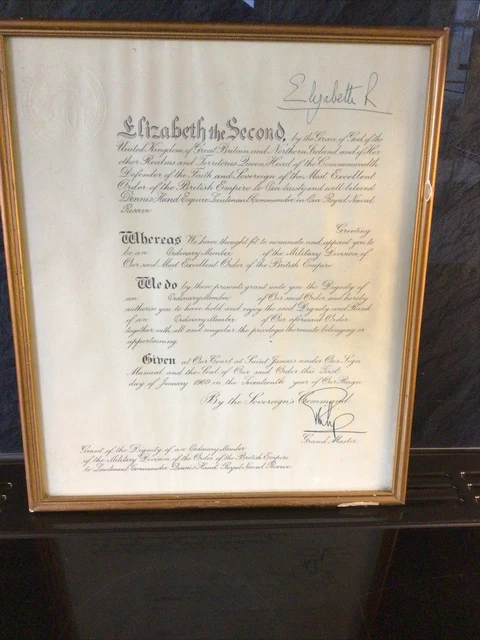 Elizabeth R
Elizabeth the Second, by the Grace of God of the
United Kingdom of Great Britain and Northern Ireland and of Her
other Realms and Territories Queen, Head of the Commonwealth,
Defender of the Faith and Sovereign of the Most Excellent
Order of the British Empire to Our trusty and well beloved
Dennis Hand Esquire Lieutenant Commander in Our Royal Naval
Reserve
Greeting
Whereas We have thought fit to nominate and appoint you to
be an Ordinary Member of the Military Division of
Our said Most Excellent Order of the British Empire
We do by these presents grant unto you the Dignity of
an Ordinary Member of Our said Order and hereby
authorise you to have hold and enjoy the said Dignity and Rank
of an Ordinary Member of Our aforesaid Order
together with all and singular the privileges thereunto belonging or
appertaining.
Given at Our Court at Saint James's under Our Sign
Manual and the Seal of Our said Order this First
day of January 1969 in the Seventeenth year of Our Reign
By the Sovereign's Command
Grand Master
Grant of the Dignity of an Ordinary Member
of the Military Division of the Order of the British Empire
to Lieutenant Commander Dennis Hand Royal Naval Reserve